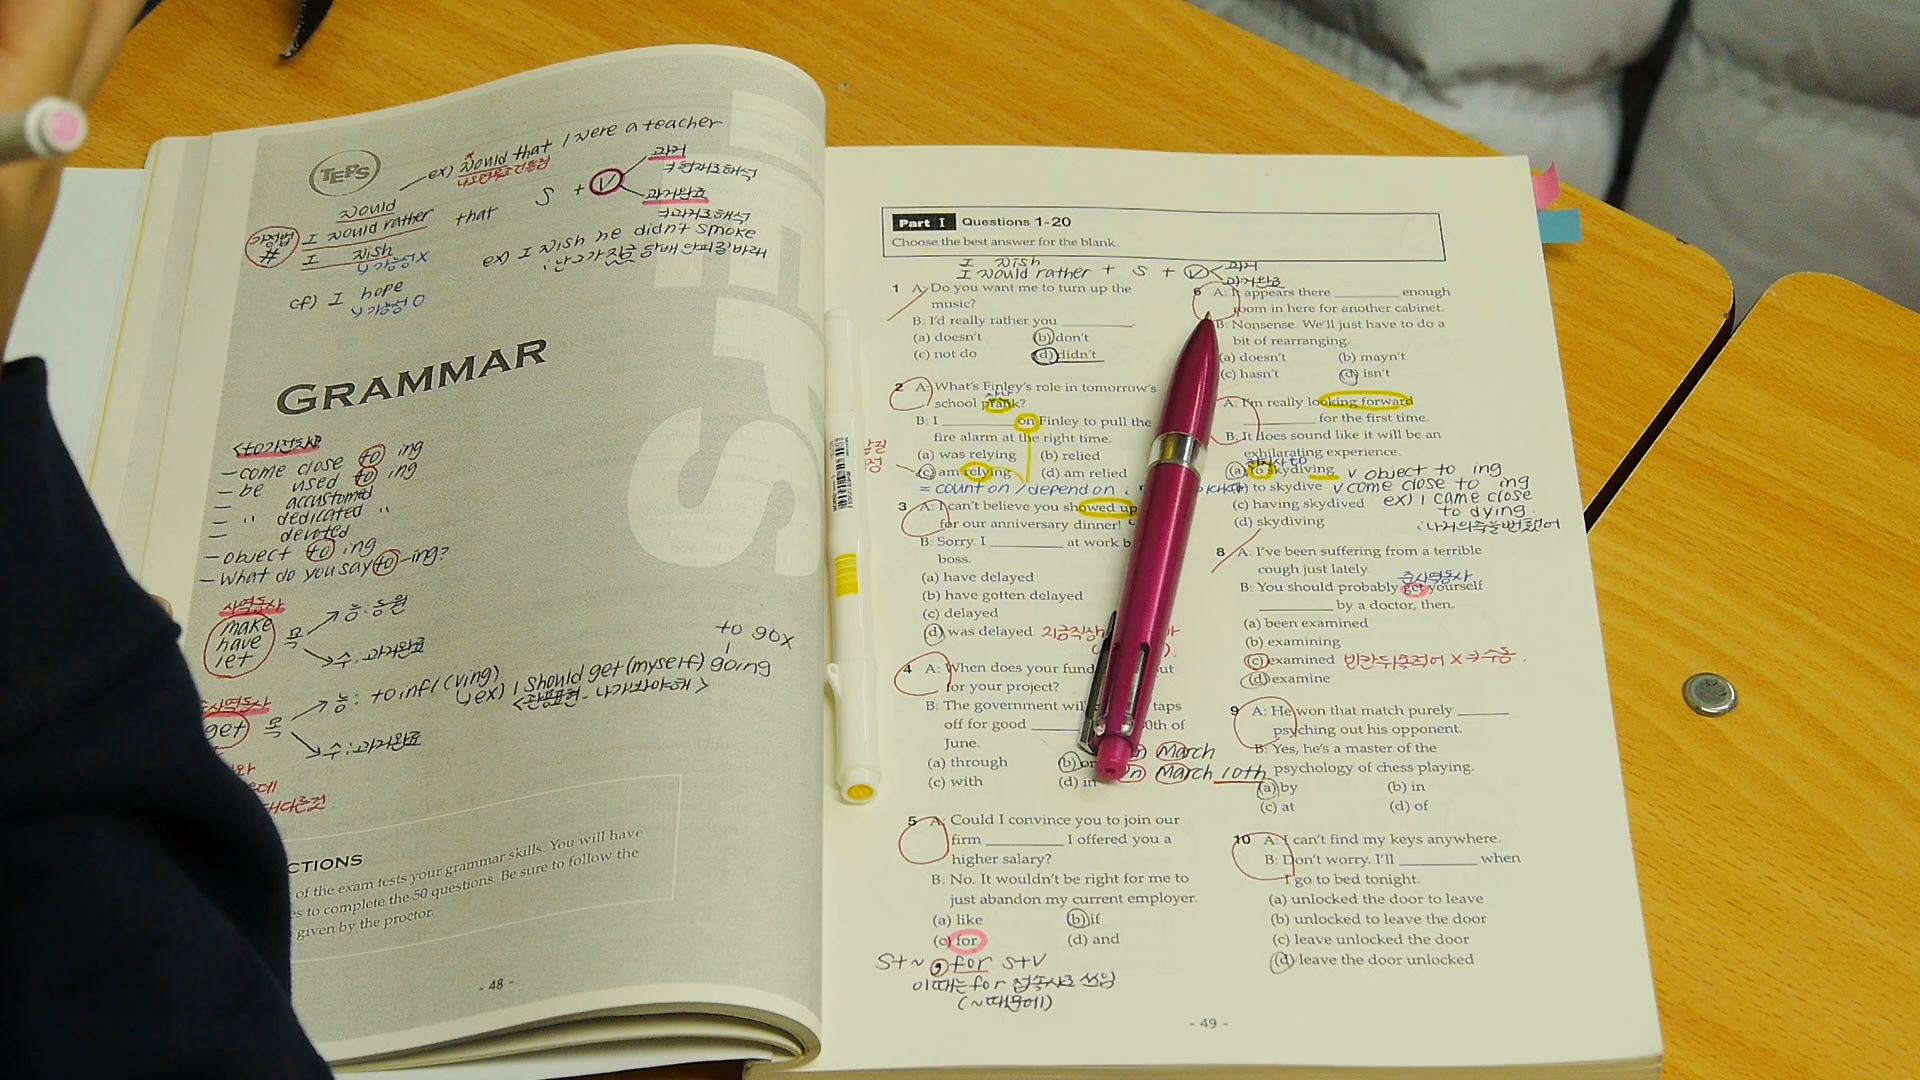 TEPS
ex) Would that I were a teacher
과거
⇒현재로해석
would
I would rather that S + V
과거완료
⇒과거로해석
가정법
#
I wish
↳가능성X
ex) I wish he didn't smoke
: 난 그가 지금 담배 안피길 바래
cf) I hope
↳가능성O
GRAMMAR
- come close to ing
- be used to ing
- " accustomed
dedicated "
devoted
- object to ing
- What do you say to -ing?
사역동사
make
have
let
목
능:동원
수:과거완료
to go X
get
목
능: to inf / (ving)
↳ex) I should get (myself) going
수:과거완료
CTIONS
of the exam tests your grammar skills. You will have
es to complete the 50 questions. Be sure to follow the
given by the proctor.
- 48 -
Part I Questions 1-20
Choose the best answer for the blank.
I wish
I would rather + S + V
과거
과거완료
1 A: Do you want me to turn up the
music?
B: I'd really rather you ________.
(a) doesn't (b) don't
(c) not do (d) didn't
2 A: What's Finley's role in tomorrow's
school prank?
B: I ________ on Finley to pull the
fire alarm at the right time.
(a) was relying (b) relied
(c) am relying (d) am relied
= count on / depend on
3 A: I can't believe you showed up
for our anniversary dinner!
B: Sorry. I ________ at work b
boss.
(a) have delayed
(b) have gotten delayed
(c) delayed
(d) was delayed
4 A: When does your fund
for your project?
B: The government wil taps
off for good 0th of
June.
(a) through (b) on
(c) with (d) in
March
March 10th
5 A: Could I convince you to join our
firm ________ I offered you a
higher salary?
B: No. It wouldn't be right for me to
just abandon my current employer.
(a) like (b) if
(c) for (d) and
S+~ , for S+V
이때는 for 접속사로 쓰임
(~때문에)
6 A: It appears there ________ enough
room in here for another cabinet.
B: Nonsense. We'll just have to do a
bit of rearranging.
(a) doesn't (b) mayn't
(c) hasn't (d) isn't
A: I'm really looking forward
________ for the first time.
B: It does sound like it will be an
exhilarating experience.
(a) to skydiving
(b) to skydive
(c) having skydived
(d) skydiving
v object to ing
v come close to ing
ex) I came close
to dying
8 A: I've been suffering from a terrible
cough just lately.
준사역동사
B: You should probably get yourself
________ by a doctor, then.
(a) been examined
(b) examining
(c) examined
(d) examine
9 A: He won that match purely ________
psyching out his opponent.
B: Yes, he's a master of the
psychology of chess playing.
(a) by (b) in
(c) at (d) of
10 A: I can't find my keys anywhere.
B: Don't worry. I'll ________ when
I go to bed tonight.
(a) unlocked the door to leave
(b) unlocked to leave the door
(c) leave unlocked the door
(d) leave the door unlocked
- 49 -